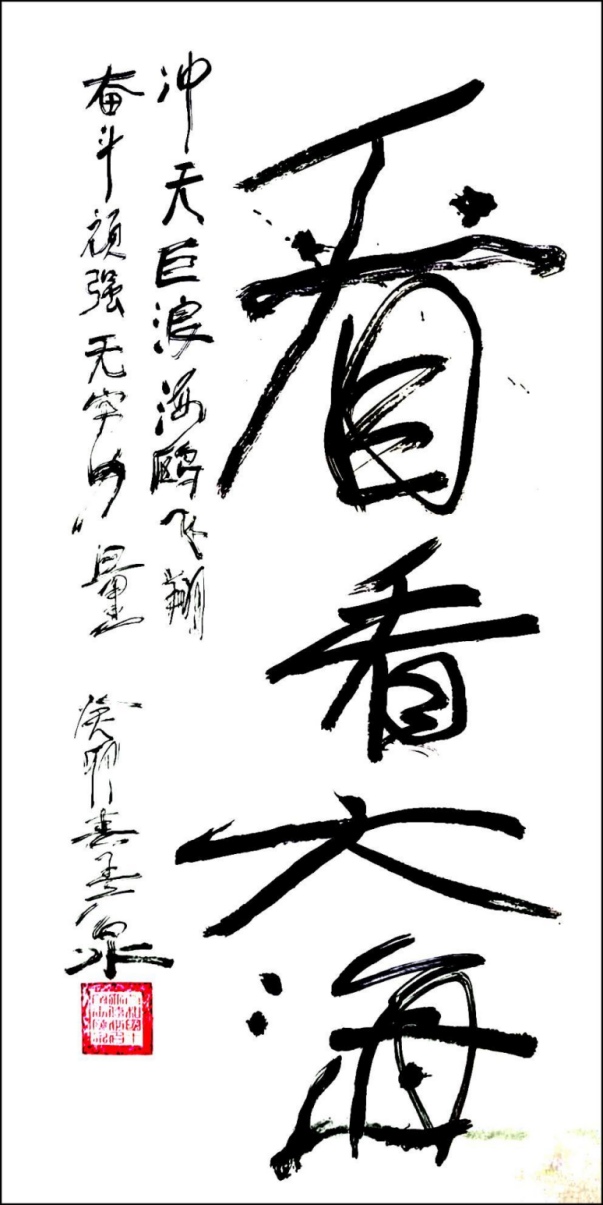 看看大海
冲天巨浪海鸥飞翔
奋斗顽强无穷力量
癸卯春 泉